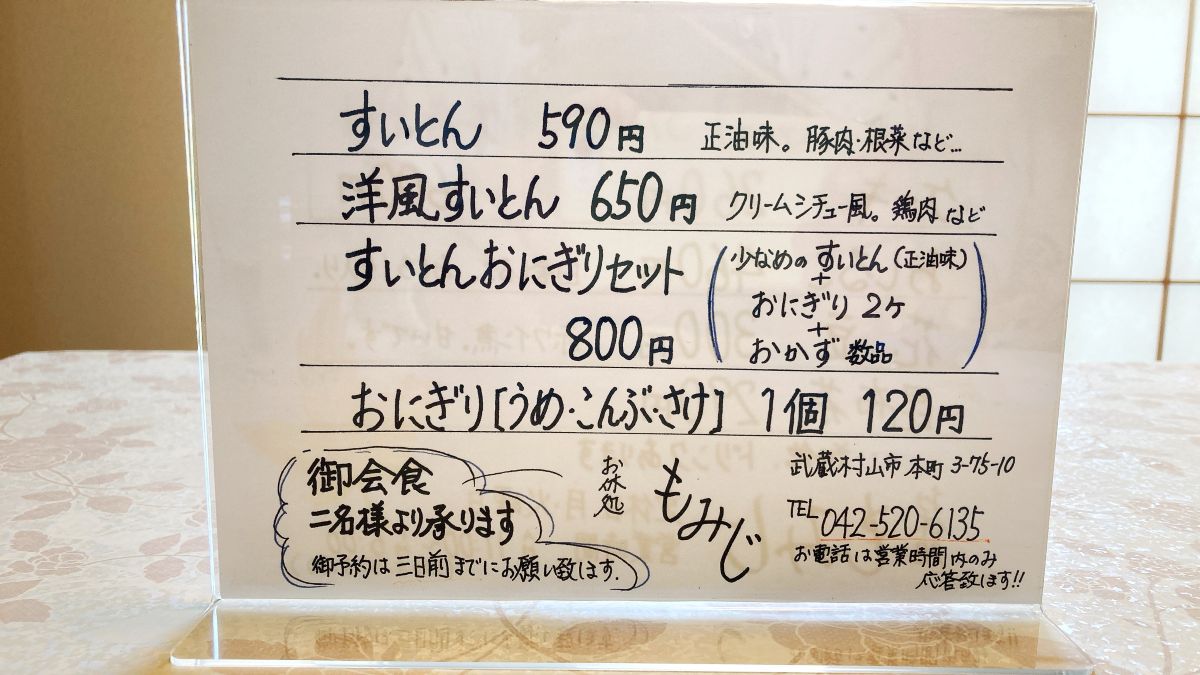 すいとん 590円 正油味。豚肉・根菜など…
洋風すいとん 650円 クリームシチュー風。鶏肉など
すいとんおにぎりセット
800円
(少なめのすいとん(正油味)
+
おにぎり 2ケ
+
おかず 数品)
おにぎり[うめ・こんぶ・さけ] 1個 120円
御会食
二名様より承ります
御予約は三日前までにお願い致します.
お休処
もみじ
武蔵村山市本町3-75-10
TEL 042-520-6135
お電話は営業時間内のみ
応答致します!!